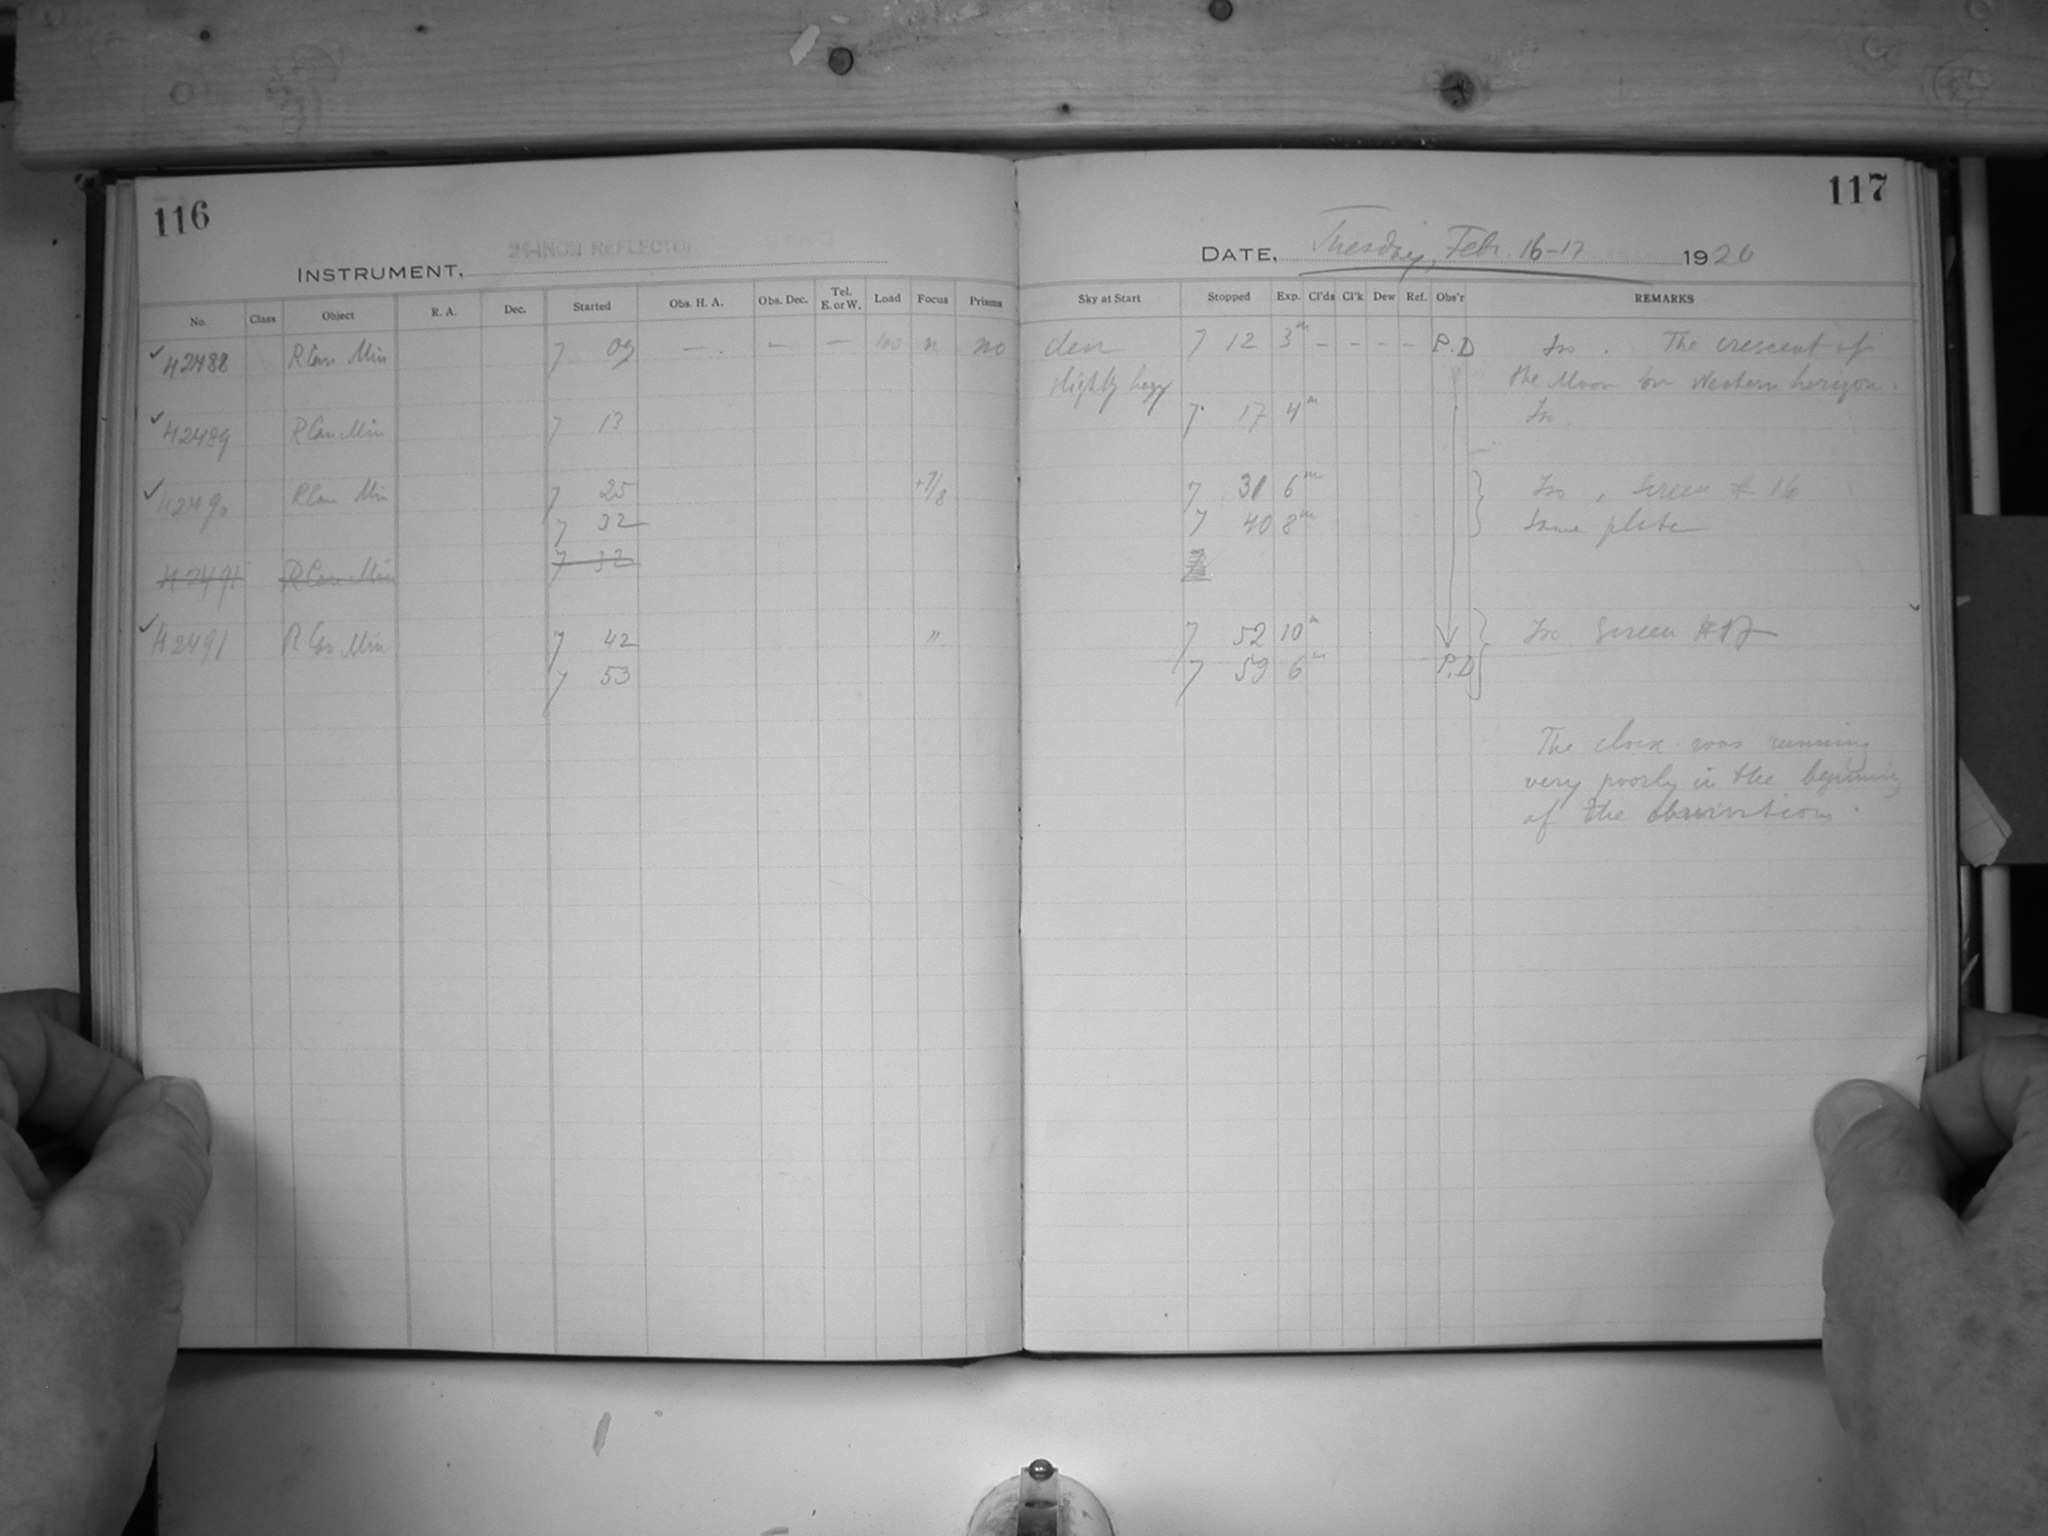 116
INSTRUMENT, 24-INCH REFLECTOR
No. Class Object R. A. Dec. Started Obs. H. A. Obs. Dec. Tel. E. or W. Load Focus Prisms
H2488 R Can Min 7 09 — — — n no
H2489 R Can Min 7 13
H2490 R Can Min 7 25 +7/8
7 32
H2491 R Can Min 7 32
H2491 R Can Min 7 42 "
7 53
117
DATE, Tuesday, Feb. 16-17 1926
Sky at Start Stopped Exp. Cl'ds Cl'k Dew Ref. Obs'r REMARKS
clear 7 12 3m - - - - P.D Iso. The crescent of
slightly hazy the Moon on Western horizon.
7 17 4m Iso.
7 31 6m Iso, Screen # 16
7 40 8m Same plate
7 52 10m Iso Screen #17
7 59 6m P.D
The clock was running
very poorly in the beginning
of the observations.